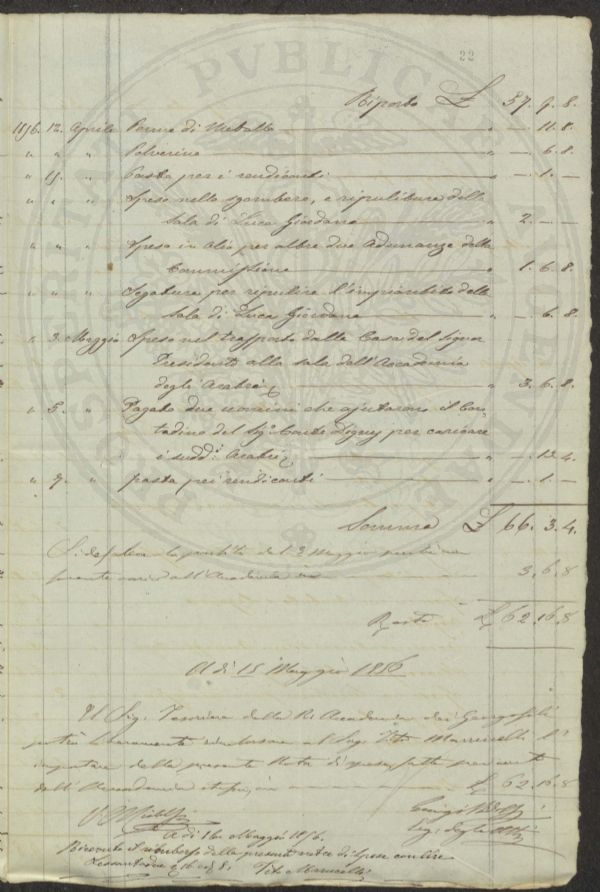 22
Riporto £ 57. 9. 8.
1856. 12. Aprile Penne di Metallo " —. 11. 8.
" " " Polverino " —. 6. 8.
" 19. " Posta per i rendiconti " —. 1. —
" " " Spese nello sgombero, e ripulitura della
Sala di Luca Giordano " 2. —. —
" " " Spese in Olio per altre due Adunanze della
Commissione " 1. 6. 8.
" " " Segatura per ripulire l'impiantito della
Sala di Luca Giordano " —. 6. 8.
" 3. Maggio Spese nel trasporto dalla Casa del Signor
Presidente alla sala dell'Accademia
degli Aratri " 3. 6. 8.
" 5. " Pagato due uomini che ajutarono il Con-
tadino del Sig.r Conte Digny per caricare
i sudd.i Aratri " —. 13. 4.
" 9. " posta pei rendiconti " —. 1. —
Somma £ 66. 3. 4.
Si defalca la partita del 3 Maggio
all'Accademia 3. 6. 8
Resta £ 62. 16. 8
A dì 15 Maggio 1856
Il Sig. Tesoriere della R. Accademia dei Georgofili
potrà liberamente rimborsare al Sig. Tito Marucelli l'
importare della presente Nota di spese fatte per conto
dell'Accademia £ 62. 16. 8
Luigi
Seg. degli Atti
A dì 16 Maggio 1856.
Ricevuto il rimborso della presente nota di spese con lire
Sessantadue e 16 e 8. Tito Marucelli